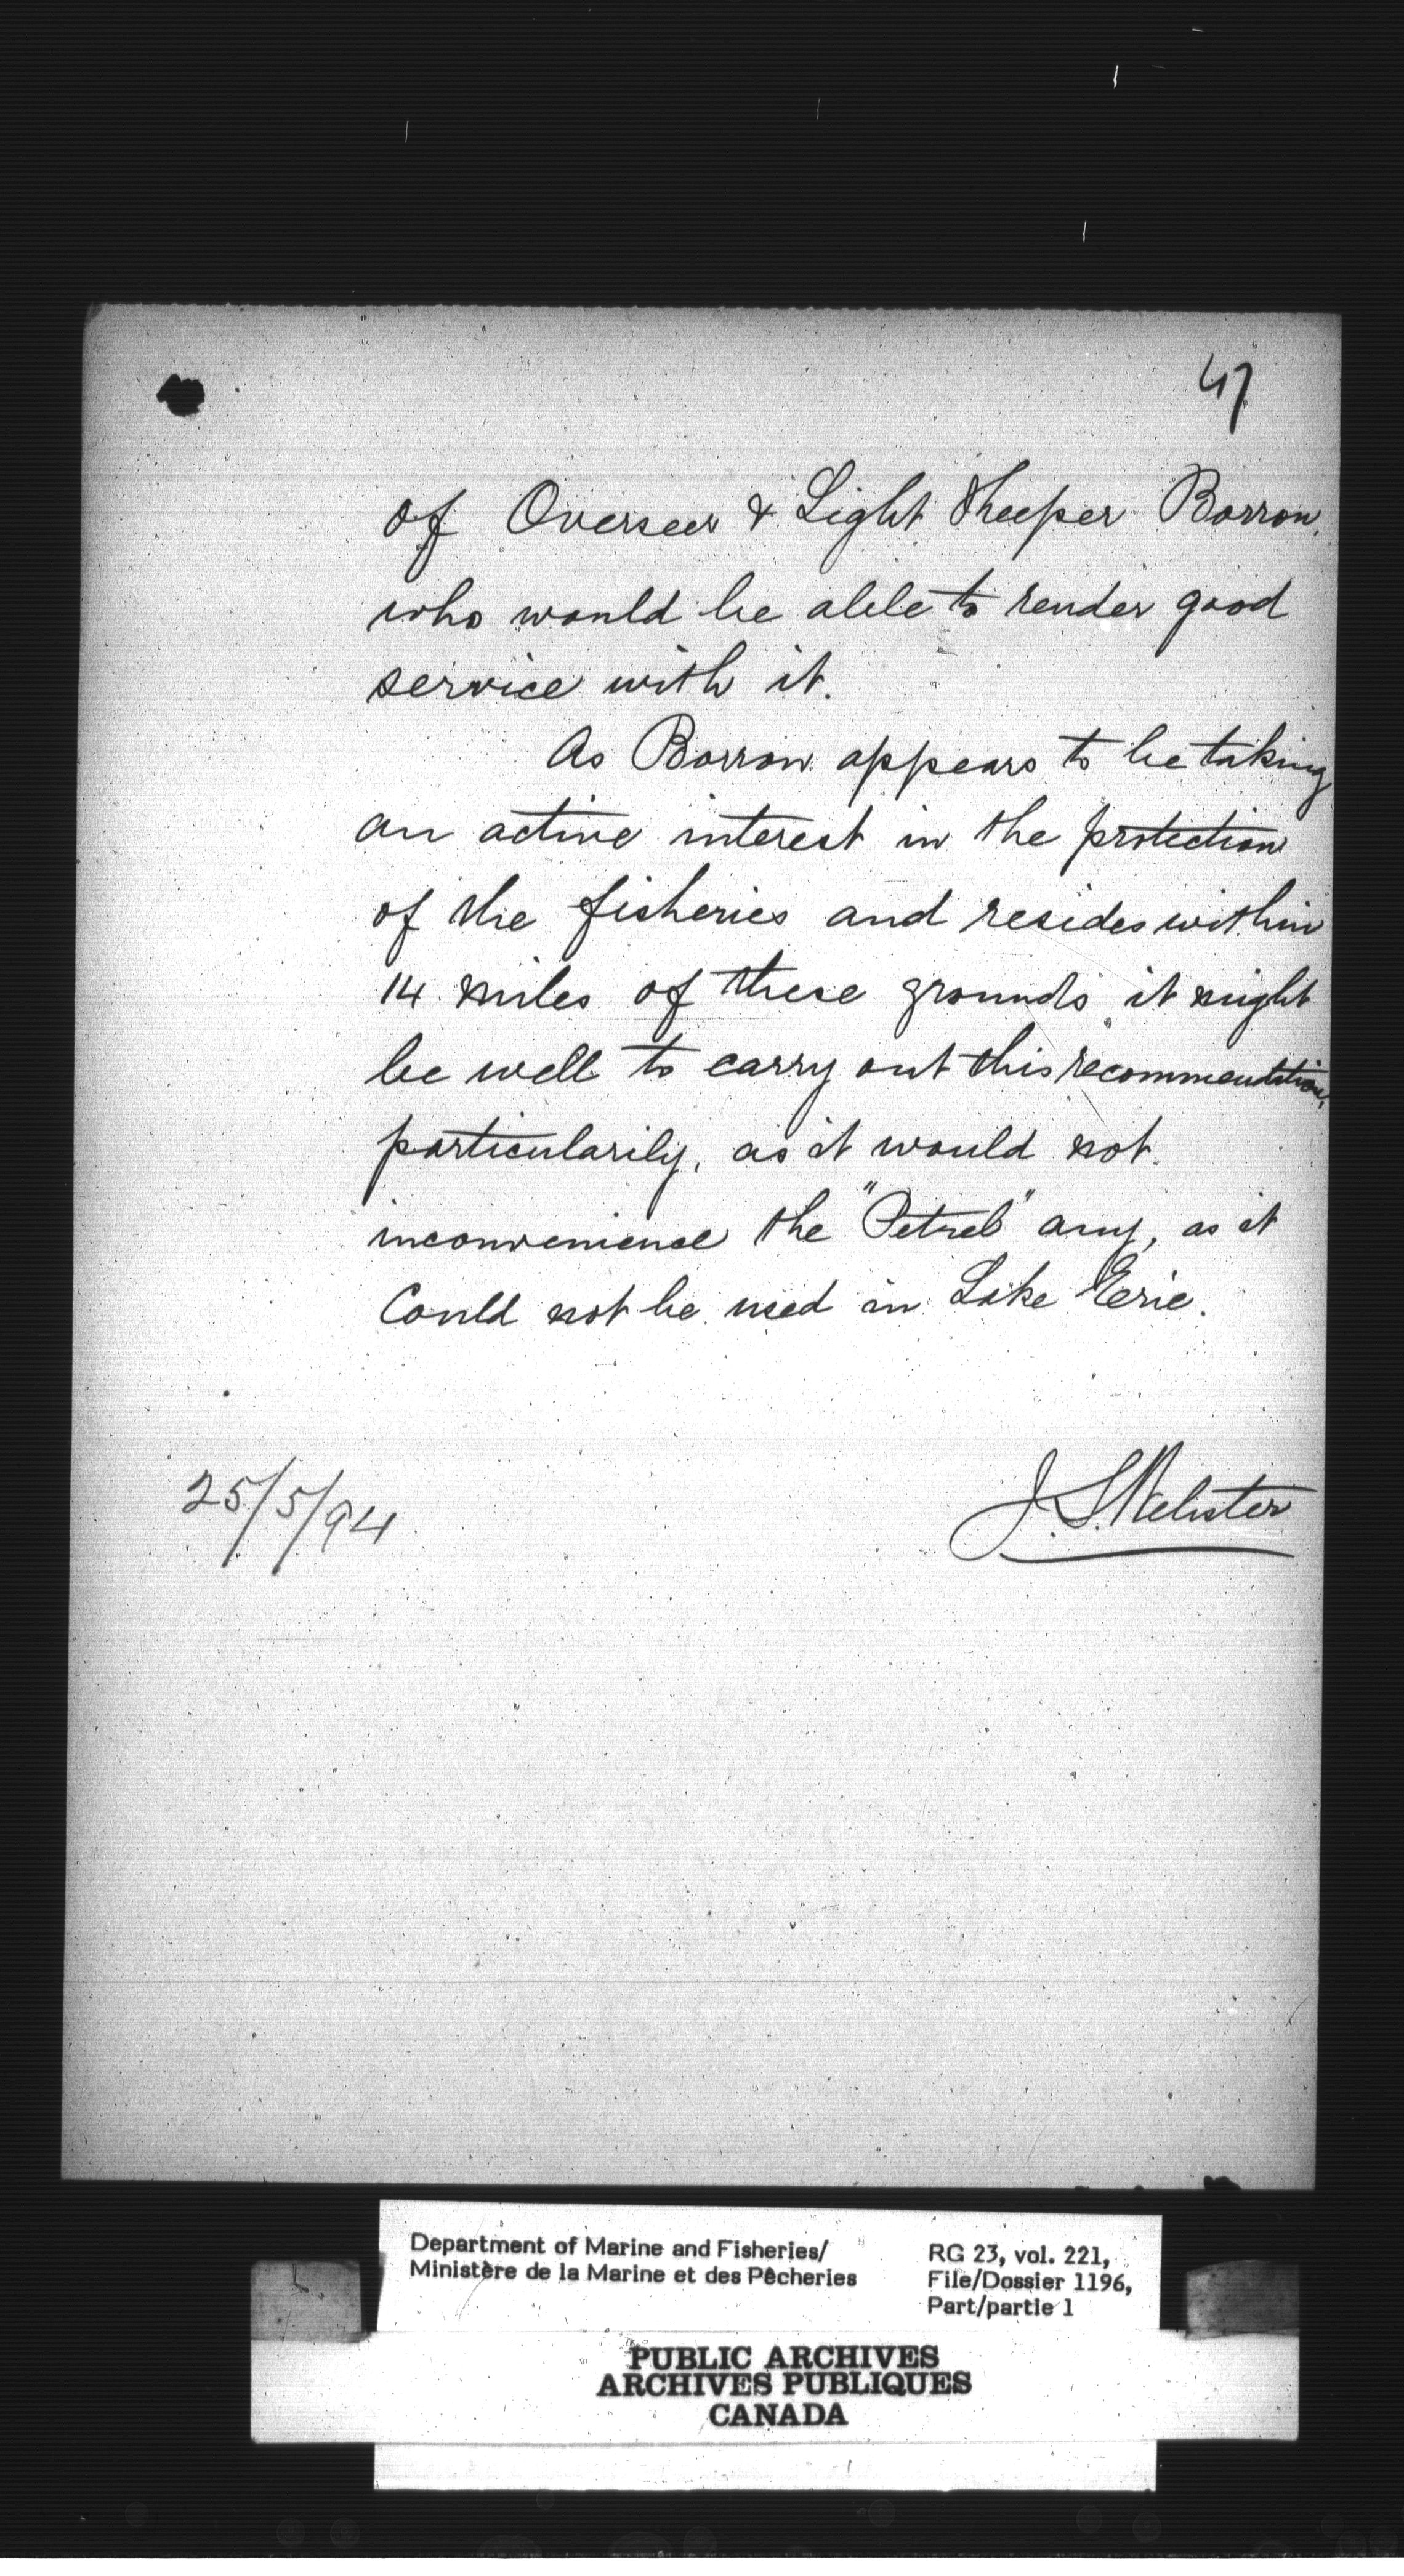 47
of Overseer & Light Keeper Borron,
who would be able to render good
service with it.
As Borron appears to be taking
an active interest in the protection
of the fisheries and resides within
14 miles of these grounds it might
be well to carry out this recommendation,
particularily, as it would not
inconvenience the "Petrel" any, as it
Could not be used in Lake Erie.
25/5/94
J. S. Webster
Department of Marine and Fisheries/
Ministère de la Marine et des Pêcheries
RG 23, vol. 221,
File/Dossier 1196,
Part/partie 1
PUBLIC ARCHIVES
ARCHIVES PUBLIQUES
CANADA